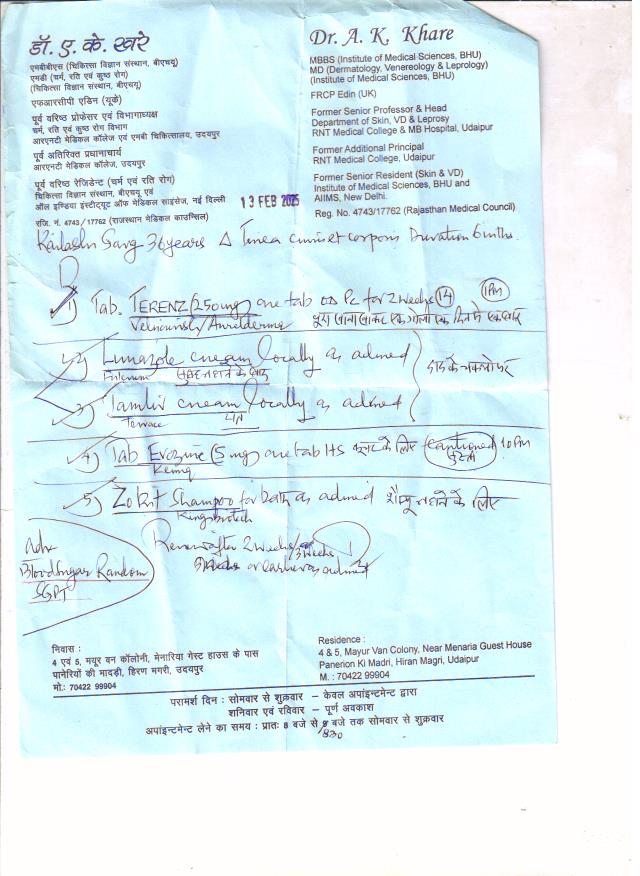 डॉ. ए. के. खरे
एमबीबीएस (चिकित्सा विज्ञान संस्थान, बीएचयू)
एमडी (चर्म, रति एवं कुष्ठ रोग)
(चिकित्सा विज्ञान संस्थान, बीएचयू)
एफआरसीपी एडिन (यूके)
पूर्व वरिष्ठ प्रोफेसर एवं विभागाध्यक्ष
चर्म, रति एवं कुष्ठ रोग विभाग
आरएनटी मेडिकल कॉलेज एवं एमबी चिकित्सालय, उदयपुर
पूर्व अतिरिक्त प्रधानाचार्य
आरएनटी मेडिकल कॉलेज, उदयपुर
पूर्व वरिष्ठ रेजिडेन्ट (चर्म एवं रति रोग)
चिकित्सा विज्ञान संस्थान, बीएचयू एवं
ऑल इण्डिया इंस्टीट्यूट ऑफ मेडिकल साइंसेज, नई दिल्ली
रजि. नं. 4743/17762 (राजस्थान मेडिकल काउन्सिल)
Dr. A. K. Khare
MBBS (Institute of Medical Sciences, BHU)
MD (Dermatology, Venereology & Leprology)
(Institute of Medical Sciences, BHU)
FRCP Edin (UK)
Former Senior Professor & Head
Department of Skin, VD & Leprosy
RNT Medical College & MB Hospital, Udaipur
Former Additional Principal
RNT Medical College, Udaipur
Former Senior Resident (Skin & VD)
Institute of Medical Sciences, BHU and
AIIMS, New Delhi.
Reg. No. 4743/17762 (Rajasthan Medical Council)
13 FEB 2025
Garg 36 years Δ Tinea cruris et corporis Duration 6 mths.
1) Tab. TERENZ (250mg) one tab OD Pc for 2 weeks 14 1PM
2) cream locally as advised
3) cream locally as advised
4) Tab (5 mg) one tab HS के लिए 10 PM
5) Shampoo for bath as advised
Adv
Blood Sugar Random
SGPT
after 2 weeks/3 weeks
as advised
निवास :
4 एवं 5, मयूर वन कॉलोनी, मेनारिया गेस्ट हाउस के पास
पानेरियों की मादड़ी, हिरण मगरी, उदयपुर
मो.: 70422 99904
Residence :
4 & 5, Mayur Van Colony, Near Menaria Guest House
Panerion Ki Madri, Hiran Magri, Udaipur
M. : 70422 99904
परामर्श दिन : सोमवार से शुक्रवार – केवल अपांइन्टमेन्ट द्वारा
शनिवार एवं रविवार – पूर्ण अवकाश
अपांइन्टमेन्ट लेने का समय : प्रातः 8 बजे से बजे तक सोमवार से शुक्रवार
830